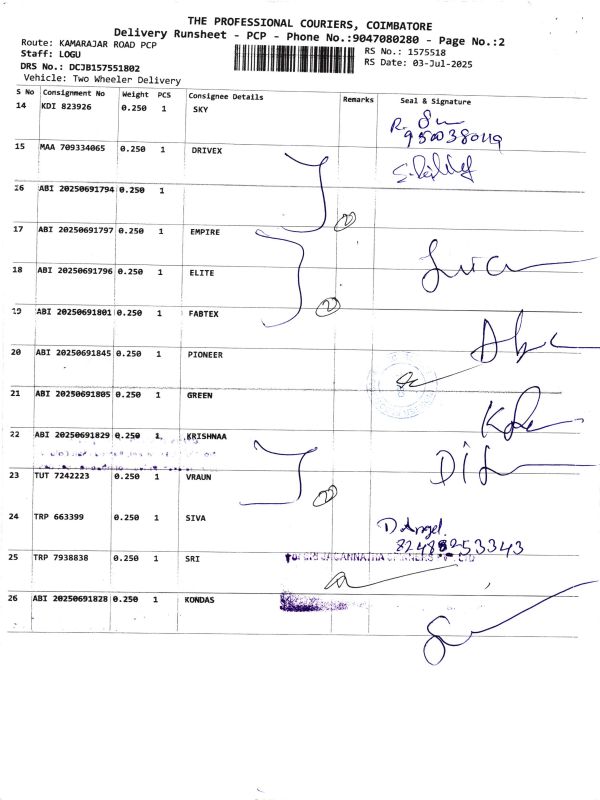 THE PROFESSIONAL COURIERS, COIMBATORE
Delivery Runsheet - PCP - Phone No.:9047080280 - Page No.:2
Route: KAMARAJAR ROAD PCP
RS No.: 1575518
Staff: LOGU
RS Date: 03-Jul-2025
DRS No.: DCJB157551802
Vehicle: Two Wheeler Delivery
S No Consignment No Weight PCS Consignee Details Remarks Seal & Signature
14 KDI 823926 0.250 1 SKY
R.
15 MAA 709334065 0.250 1 DRIVEX
16 ABI 20250691794 0.250 1
17 ABI 20250691797 0.250 1 EMPIRE
18 ABI 20250691796 0.250 1 ELITE
19 ABI 20250691801 0.250 1 FABTEX
20 ABI 20250691845 0.250 1 PIONEER
21 ABI 20250691805 0.250 1 GREEN
22 ABI 20250691829 0.250 1 KRISHNAA
23 TUT 7242223 0.250 1 VRAUN
24 TRP 663399 0.250 1 SIVA
D. Angel.
25 TRP 7938838 0.250 1 SRI
For SRI JAGANNATHA SPINNERS PVT LTD
26 ABI 20250691828 0.250 1 KONDAS